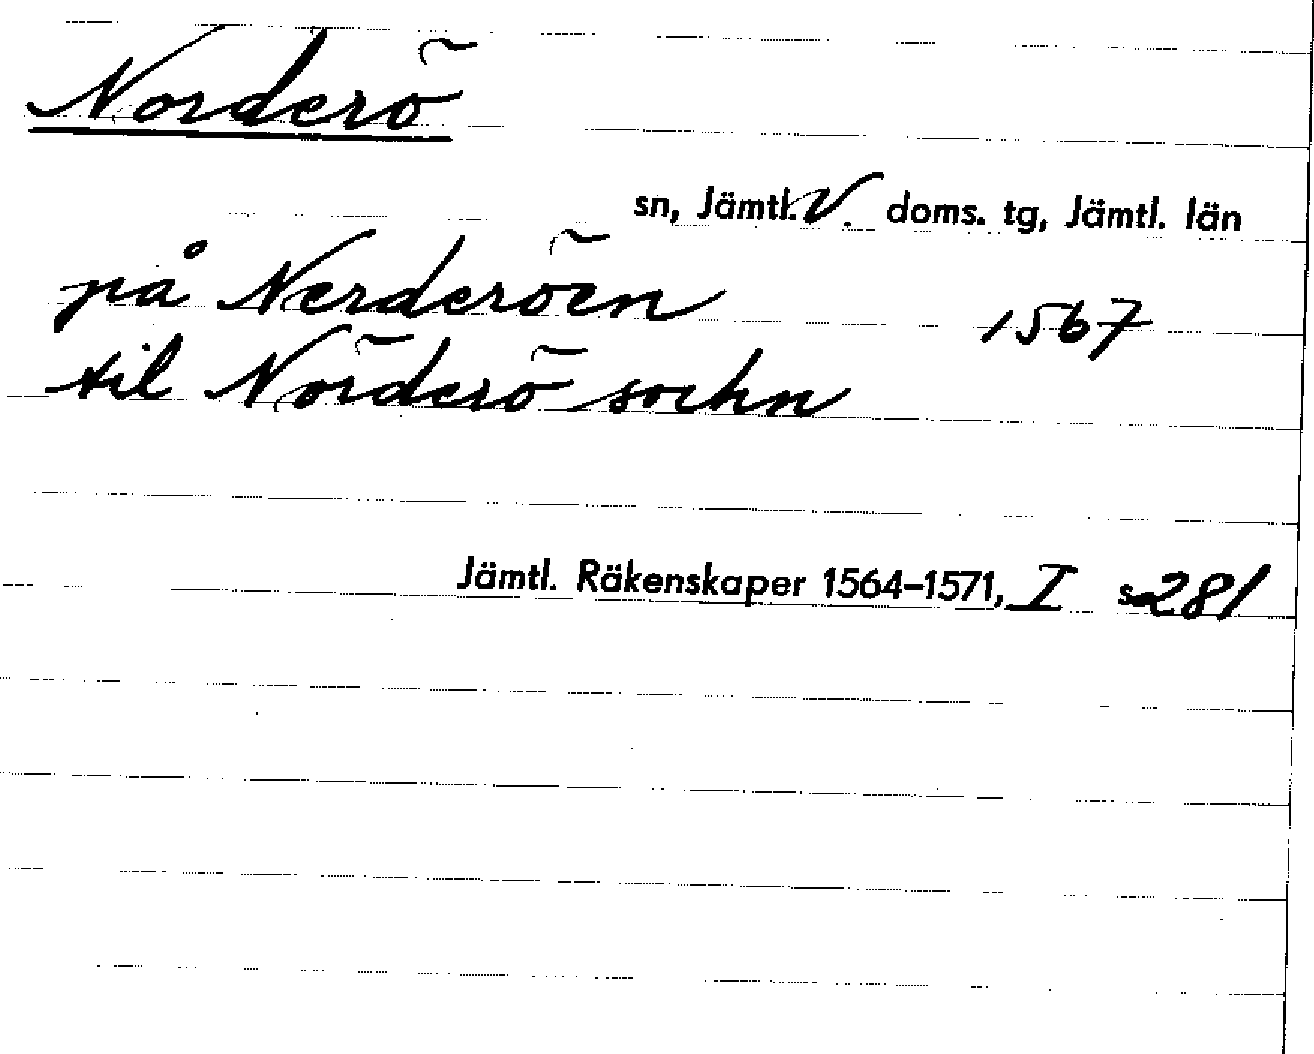 Norderö
sn, Jämtl. V. doms. tg, Jämtl. län
på Nerderöen 1567
til Nörderö sochn
Jämtl. Räkenskaper 1564–1571, I s 281